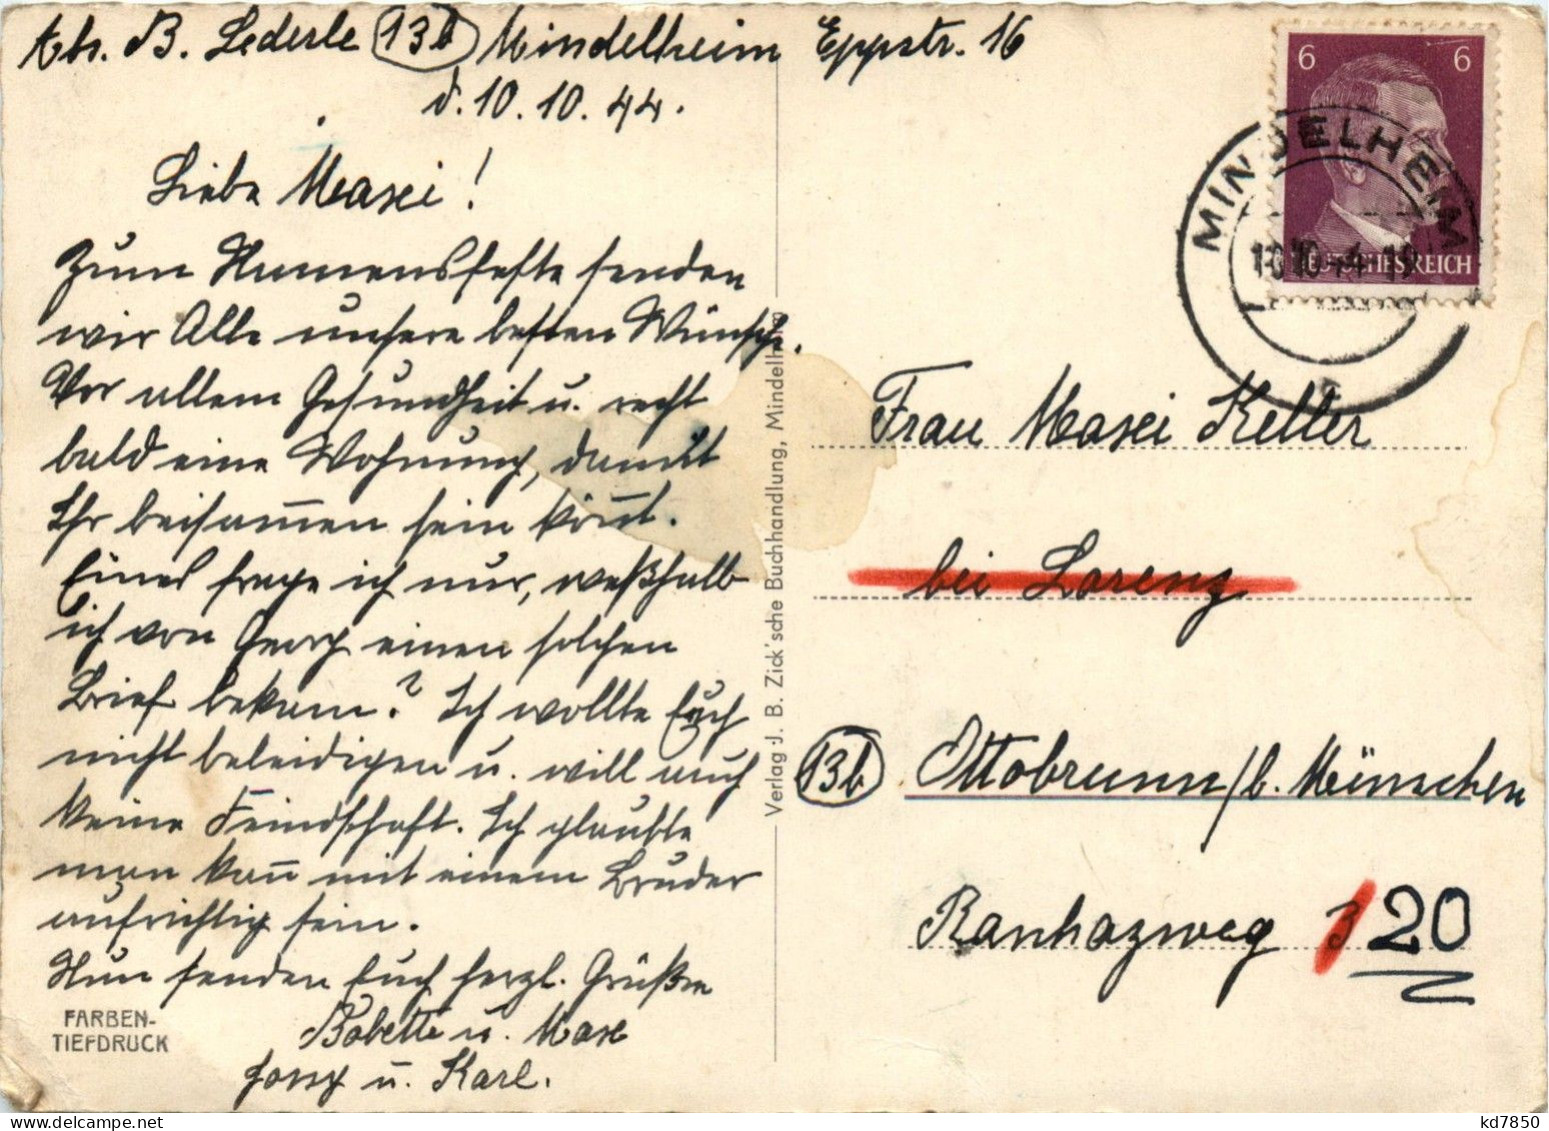 Abs. B. Lederle (13b) Mindelheim Eppstr. 16
d. 10. 10. 44.
Liebe Maxi!
Zum Namensfeste senden
wir Alle unsere besten Wünsche.
Vor allem Gesundheit u. recht
bald eine Wohnung, damit
Ihr beisam̅en sein kön̅t.
Eines frage ich nur, weßhalb
ich von Georg einen solchen
Brief bekam? Ich wollte Euch
nicht beleidigen u. will auch
keine Feindschaft. Ich glaubte
man kan̅ mit einem Bruder
aufrichtig sein.
Nun senden Euch herzl. Grüße
Babette u. Max
u. Karl.
FARBEN-
TIEFDRUCK
Verlag J. B. Zick'sche Buchhandlung, Mindelheim
6 6
DEUTSCHES REICH
MINDELHEIM
Frau Maxi Keller
bei Lorenz
(13b) Ottobrunn/b. München
Ranhazweg 3 20
kd7850